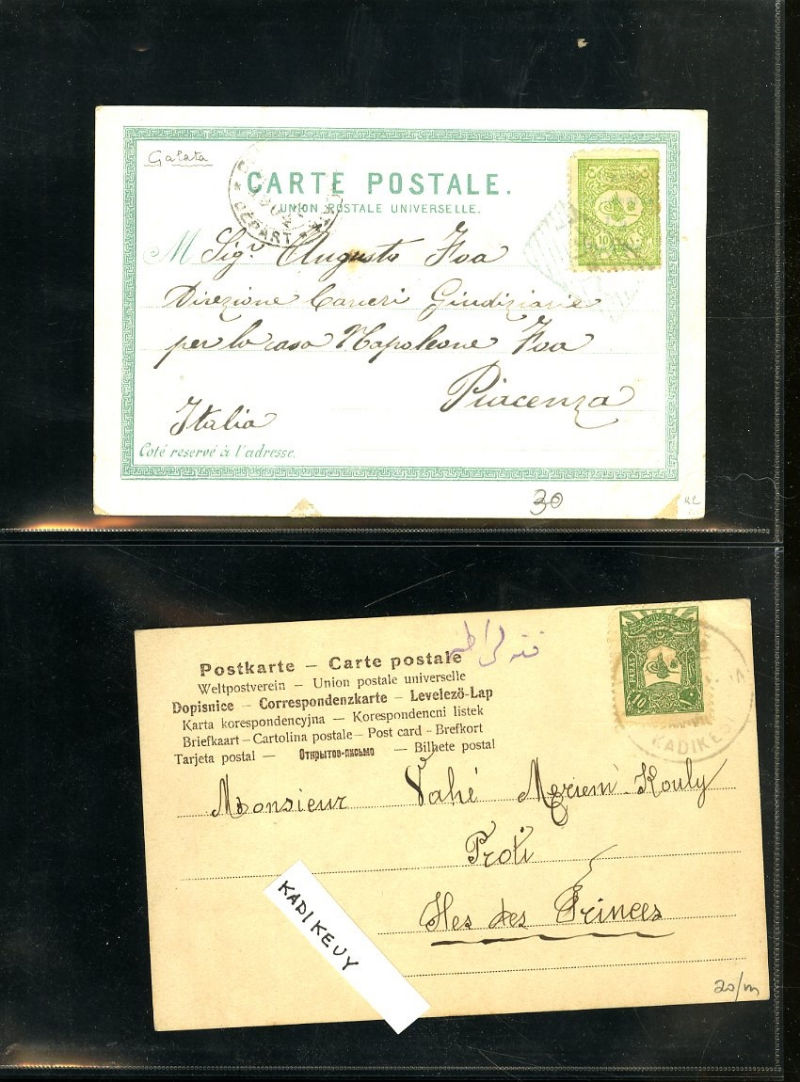 Galata
CARTE POSTALE.
UNION POSTALE UNIVERSELLE.
DÉPART
10
M Sigr. Augusto Foa
Direzione Carceri Giudiziarie
per la casa Napoleone Foa
Piacenza
Italia
Coté reservé à l'adresse.
30
Postkarte – Carte postale
Weltpostverein – Union postale universelle
Dopisnice – Correspondenzkarte – Levelező-Lap
Karta korespondencyjna – Korespondencni listek
Briefkaart – Cartolina postale – Post card – Brefkort
Tarjeta postal – Открытое-письмо – Bilhete postal
10
KADIKEUI
Monsieur Vahé Meriem Kouly
Proti
Iles des Princes
KADIKEUY
20/m